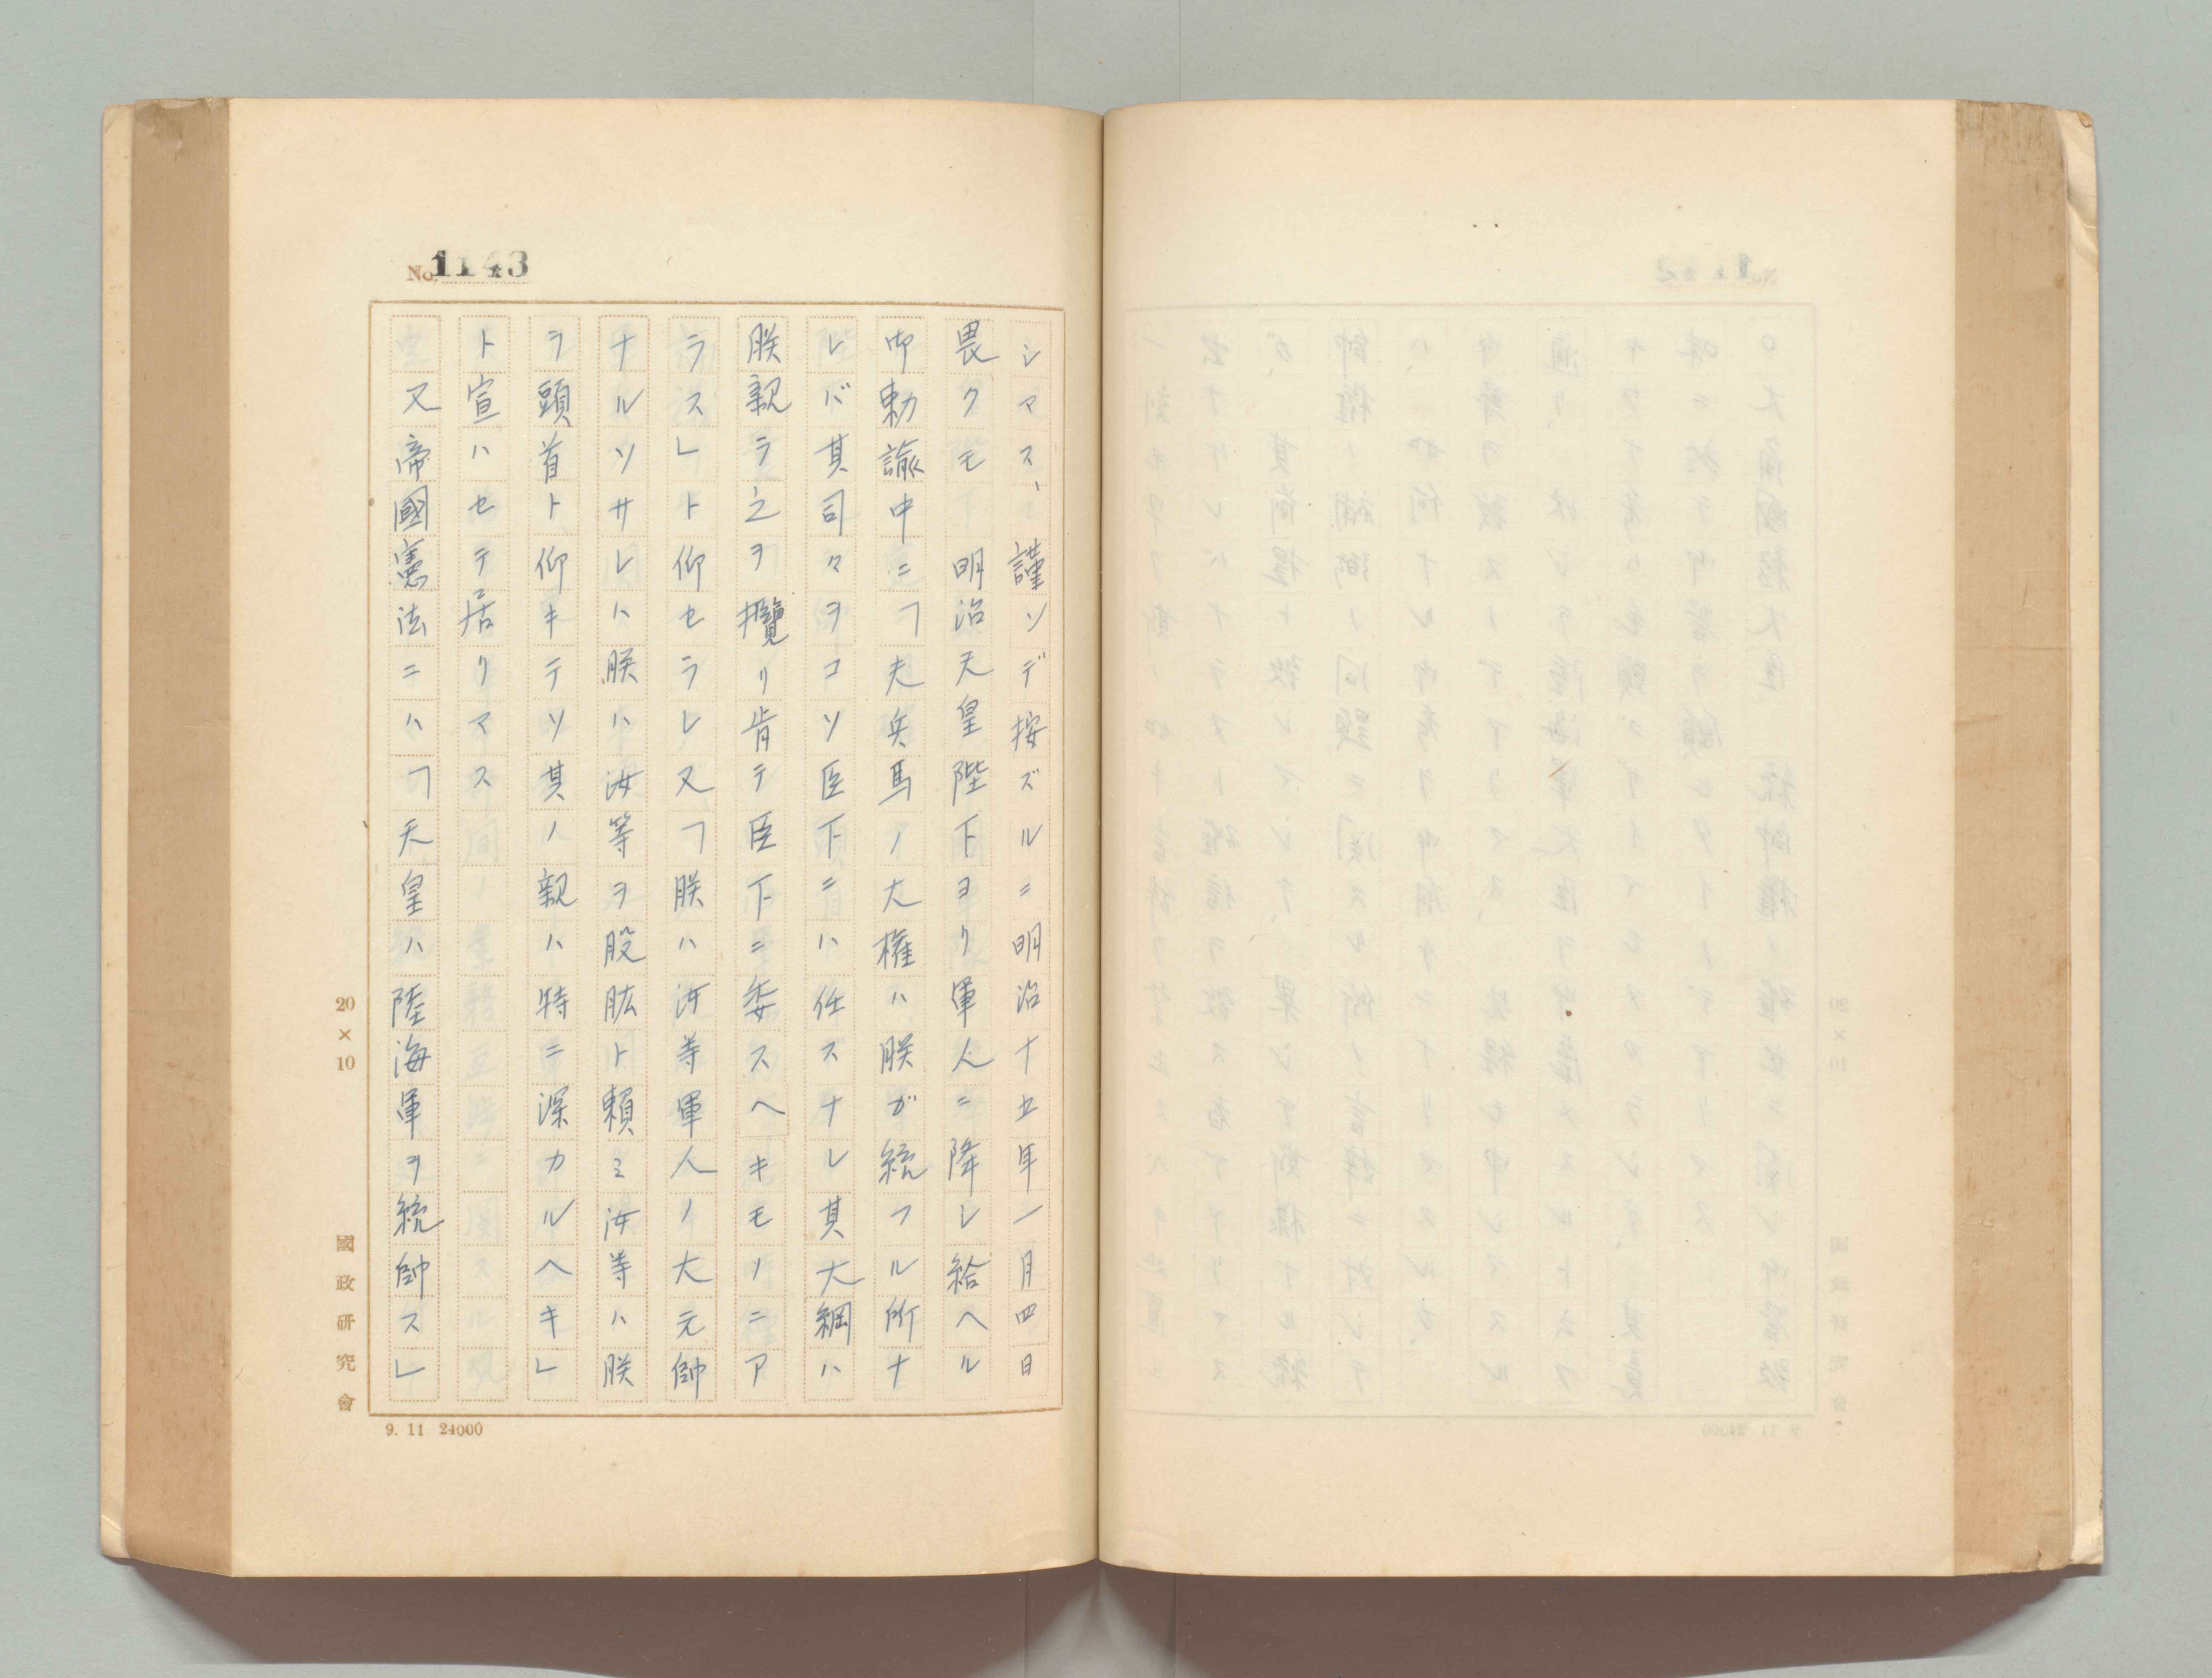 No. 1143
シマス、謹ソデ按ズルニ明治十五年一月四日
畏クモ　明治天皇陛下ヨリ軍人ニ降シ給ヘル
御勅諭中ニ「夫兵馬ノ大権ハ朕ガ統フル所ナ
レバ其司々ヲコソ臣下ニハ任スナレ其大綱ハ
朕親ラ之ヲ攬リ肯テ臣下ニ委スヘキモノニア
ラス」ト仰セラレ又「朕ハ汝等軍人ノ大元帥
ナルソサレハ朕ハ汝等ヲ股肱ト頼ミ汝等ハ朕
ヲ頭首ト仰キテソ其ノ親ハ特ニ深カルヘキ」
ト宣ハセテ居リマス
又帝國憲法ニハ「天皇ハ陸海軍ヲ統帥ス」
20×10
國政研究會
9. 11 24000